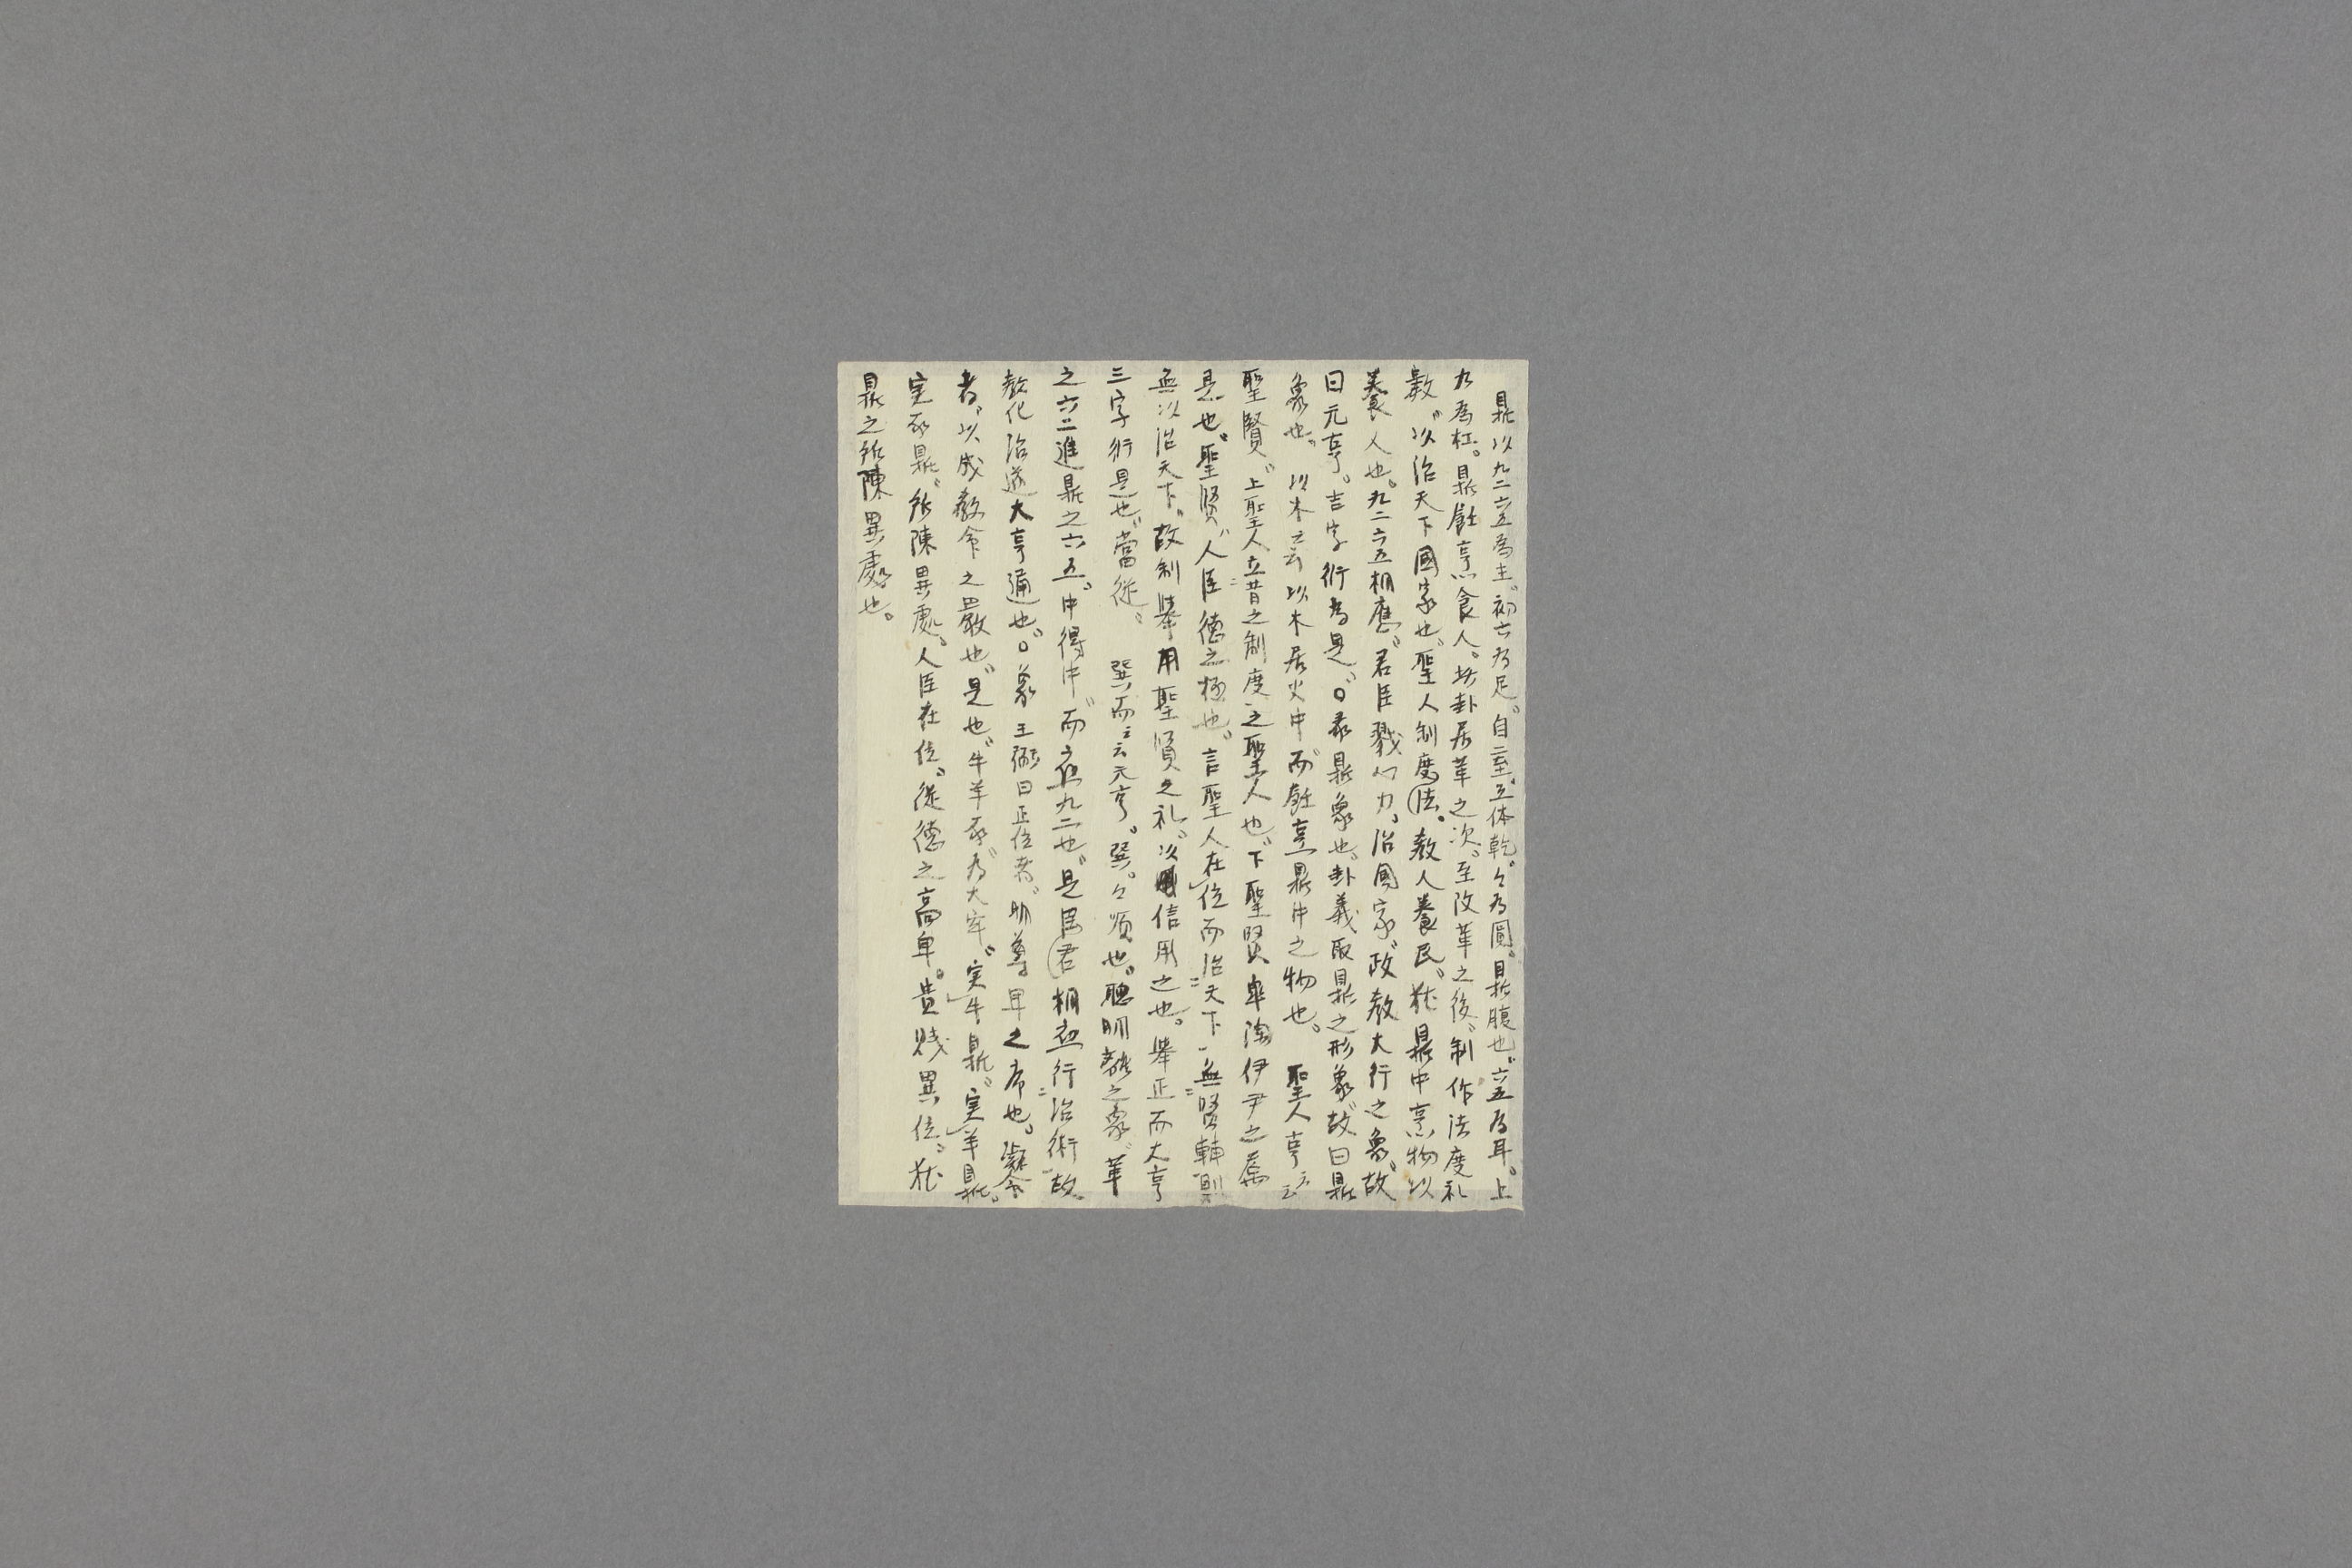 鼎以九二六五為主。初六為足。自二至五体乾。々為圓。鼎腹也。六五為耳。上
九為杠。鼎飪烹食人。此卦居革之次。至改革之後。制作法度礼
數。以治天下國家也。聖人制度法。教人養民。猶鼎中烹物以
養人也。九二六五相應。君臣戮心力。治國家。政教大行之象。故
曰元亨。吉字衍為是。○彖鼎象也。卦義取鼎之形象。故曰鼎
象也。以木云云以木居火中而飪烹鼎中之物也。聖人亨云云
聖賢。上聖人立昔之制度之聖人也。下聖賢皐陶伊尹之屬
是也。聖賢人臣德之極也。言聖人在位而治天下。無賢輔則
無以治天下。故制舉用聖賢之礼。以信用之也。舉正而大亨
三字衍是也。當從。巽而云云元亨。巽。々順也。聰明離之象。革
之六二進鼎之六五。中得中。而應九二也。是臣君相應行治術。故
教化治道大亨通也。○象王弼曰正位者。明尊卑之序也。凝命
者。以成教命之嚴也。是也。牛羊豕為大牢。実牛鼎。実羊鼎。
実豕鼎。所陳異處。人臣在位。從德之高卑。貴賤異位。猶
鼎之所陳異處也。